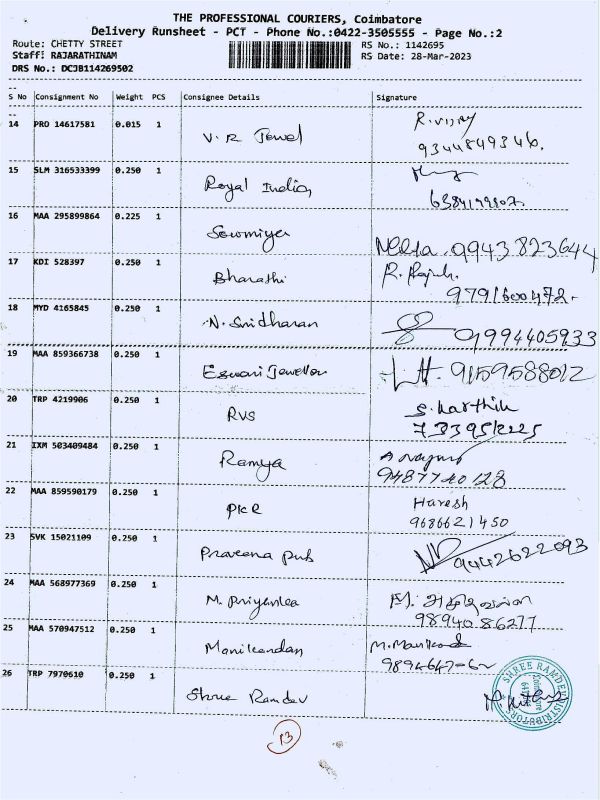 THE PROFESSIONAL COURIERS, Coimbatore
Delivery Runsheet - PCT - Phone No.:0422-3505555 - Page No.:2
Route: CHETTY STREET
RS No.: 1142695
Staff: RAJARATHINAM
RS Date: 28-Mar-2023
DRS No.: DCJB114269502
S No Consignment No Weight PCS Consignee Details Signature
14 PRO 14617581 0.015 1 V. R Jewel R. Vijay
9344849346.
15 SLM 316533399 0.250 1 Royal India
16 MAA 295899864 0.225 1 Sowmiya 9943823644
17 KDI 528397 0.250 1 Bharathi R. Rajuh.
9791600472-
18 MYD 4165845 0.250 1 N. Sridharan 9994405933
19 MAA 859366738 0.250 1 Eswari Jewellers 9159588012
20 TRP 4219906 0.250 1 RVS S. Karthik
21 IXM 503409484 0.250 1 Ramya
9487740128
22 MAA 859590179 0.250 1 PKR Haresh
9686621450
23 SVK 15021109 0.250 1 Praveena 9442622093
24 MAA 568977369 0.250 1 M. Priyanka
9894086277
25 MAA 570947512 0.250 1 Manikandan M. Manikand
26 TRP 7970610 0.250 1 Shree Ramdev
SHREE RAMDEV DISTRIBUTOR
Coimbatore
13